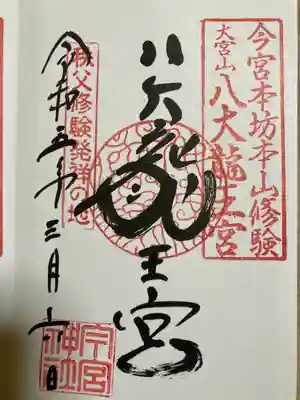 今宮本坊本山修験
大宮山 八大龍王宮
八大龍王宮
秩父修験発祥の地
令和五年三月十一日
今宮神社